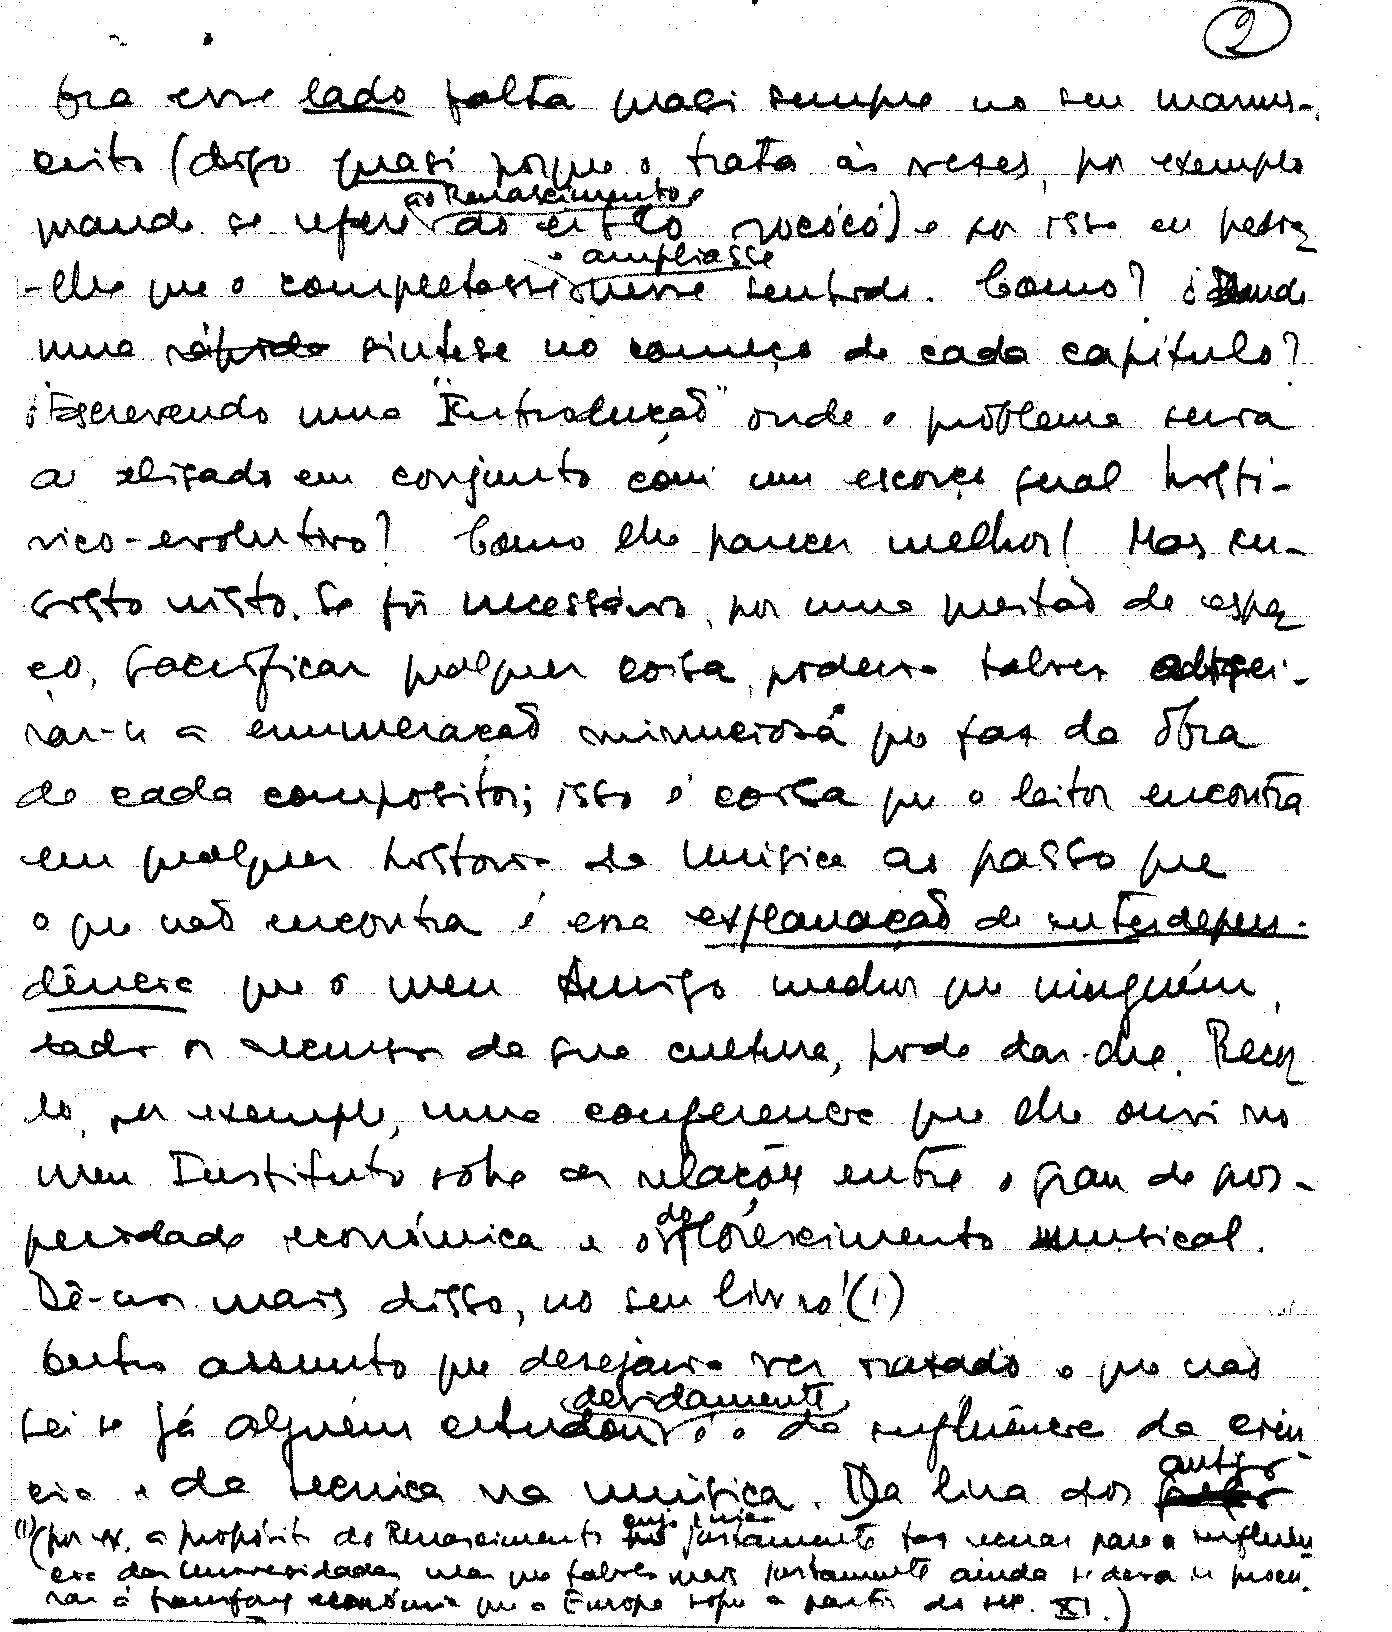 2
Ora esse lado falta quasi sempre no seu manus-
crito (digo quasi porque o trata às vezes, por exemplo
ao Renascimento e
quando se refere ao estilo rococó) e por isso eu pedia
e ampliasse
-lhe que o completasse nesse sentido. Como? ¿ Dando
uma rápida síntese no começo de cada capítulo?
¿ Escrevendo uma "Introdução" onde o problema seria
analisado em conjunto com um escorço geral histó-
rico-evolutivo? Como lhe parecer melhor! Mas in-
sisto nisto. Se fôr necessário, por uma questão de espa
ço, sacrificar qualquer coisa, poderia talvez
a enumeração minuciosa que faz da obra
de cada compositor; isso é coisa que o leitor encontra
em qualquer história da música ao passo que
o que não encontra é essa explanação de interdepen-
dência que o meu Amigo melhor que ninguém,
dados os recursos da sua cultura, pode dar-lhe. Recor
do, por exemplo, uma conferência que lhe ouvi no
meu Instituto sobre as relações entre o grau de pros-
de
peridade económica e o florescimento musical.
Dê-nos mais disso, no seu livro! (1)
Outro assunto que desejaria ver tratado e que não
devidamente
sei se já alguém estudou é o da influência da ciên
cia e da técnica na música. Da lira dos
antigos
(1) (por ex. a propósito do Renascimento
cujo início
justamente faz recuar para a influên
cia das Universidades mas que talvez mais justamente ainda se deva ir procu-
rar à transformação económica que a Europa sofre a partir do séc. XI.)